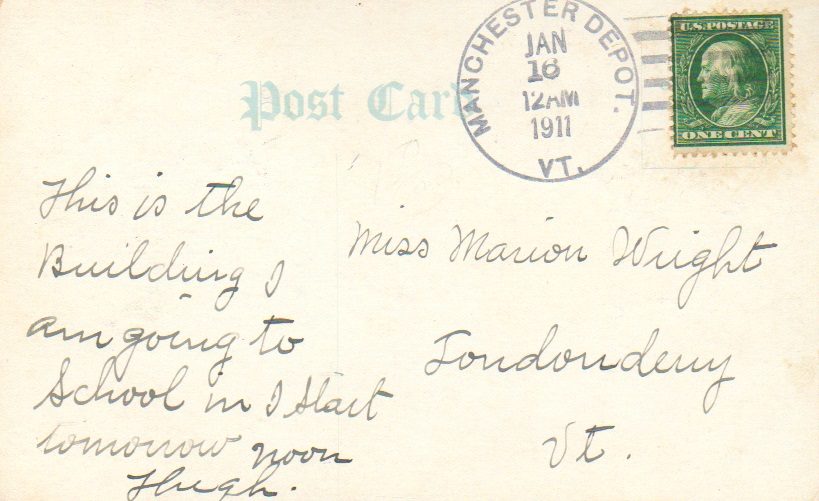 Post Card
MANCHESTER DEPOT.
JAN
16
12AM
1911
VT.
U.S. POSTAGE
ONE CENT
This is the
Building I
am going to
School in I Start
tomorrow noon
Hugh.
Miss Marion Wright
Londonderry
Vt.